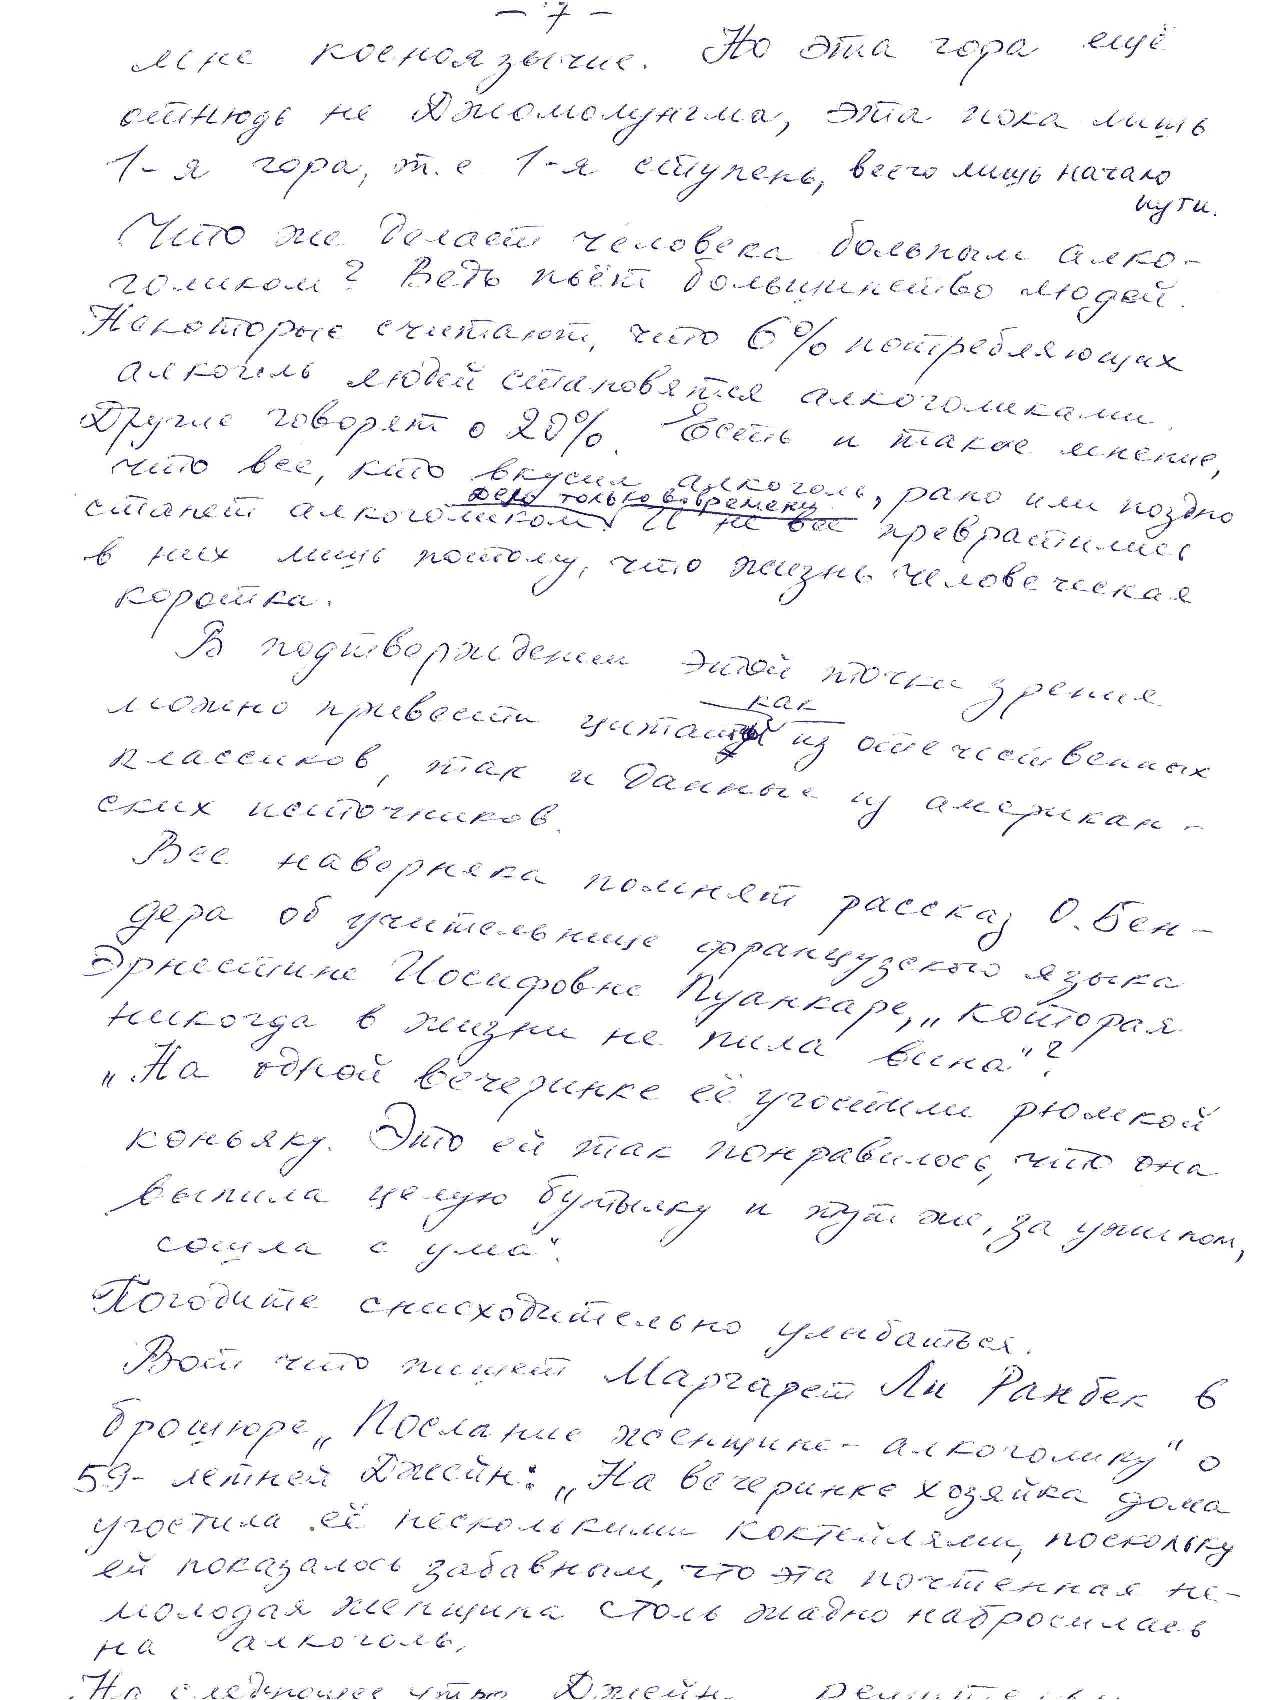 - 7 -
мне косноязычие. Но эта гора ещё
отнюдь не Джомолунгма, эта пока лишь
1-я гора, т.е 1-я ступень, всего лишь начало
пути.
Что же делает человека больным алко-
голиком? Ведь пьёт большинство людей.
Некоторые считают, что 6% потребляющих
алкоголь людей становятся алкоголиками.
Другие говорят о 20%. Есть и такое мнение,
что все, кто вкусил алкоголь, рано или поздно
дело только во времени
станет алкоголиком. И не все превратились
в них лишь потому, что жизнь человеческая
коротка.
В подтверждении этой точки зрения
как
можно привести цитаты из отечественных
классиков, так и данные из американ-
ских источников.
Все наверняка помнят рассказ О. Бен-
дера об учительнице французского языка
Эрнестине Иосифовне Пуанкаре, „которая
никогда в жизни не пила вина"?
„На одной вечеринке её угостили рюмкой
коньяку. Это ей так понравилось, что она
выпила целую бутылку и тут же, за ужином,
сошла с ума".
Погодите снисходительно улыбаться.
Вот что пишет Маргарет Ли Ранбек в
брошюре „Послание женщине-алкоголику" о
59-летней Джейн: „На вечеринке хозяйка дома
угостила её несколькими коктейлями, поскольку
ей показалось забавным, что эта почтенная не-
молодая женщина столь жадно набросилась
на алкоголь.
На следующее утро Джейн